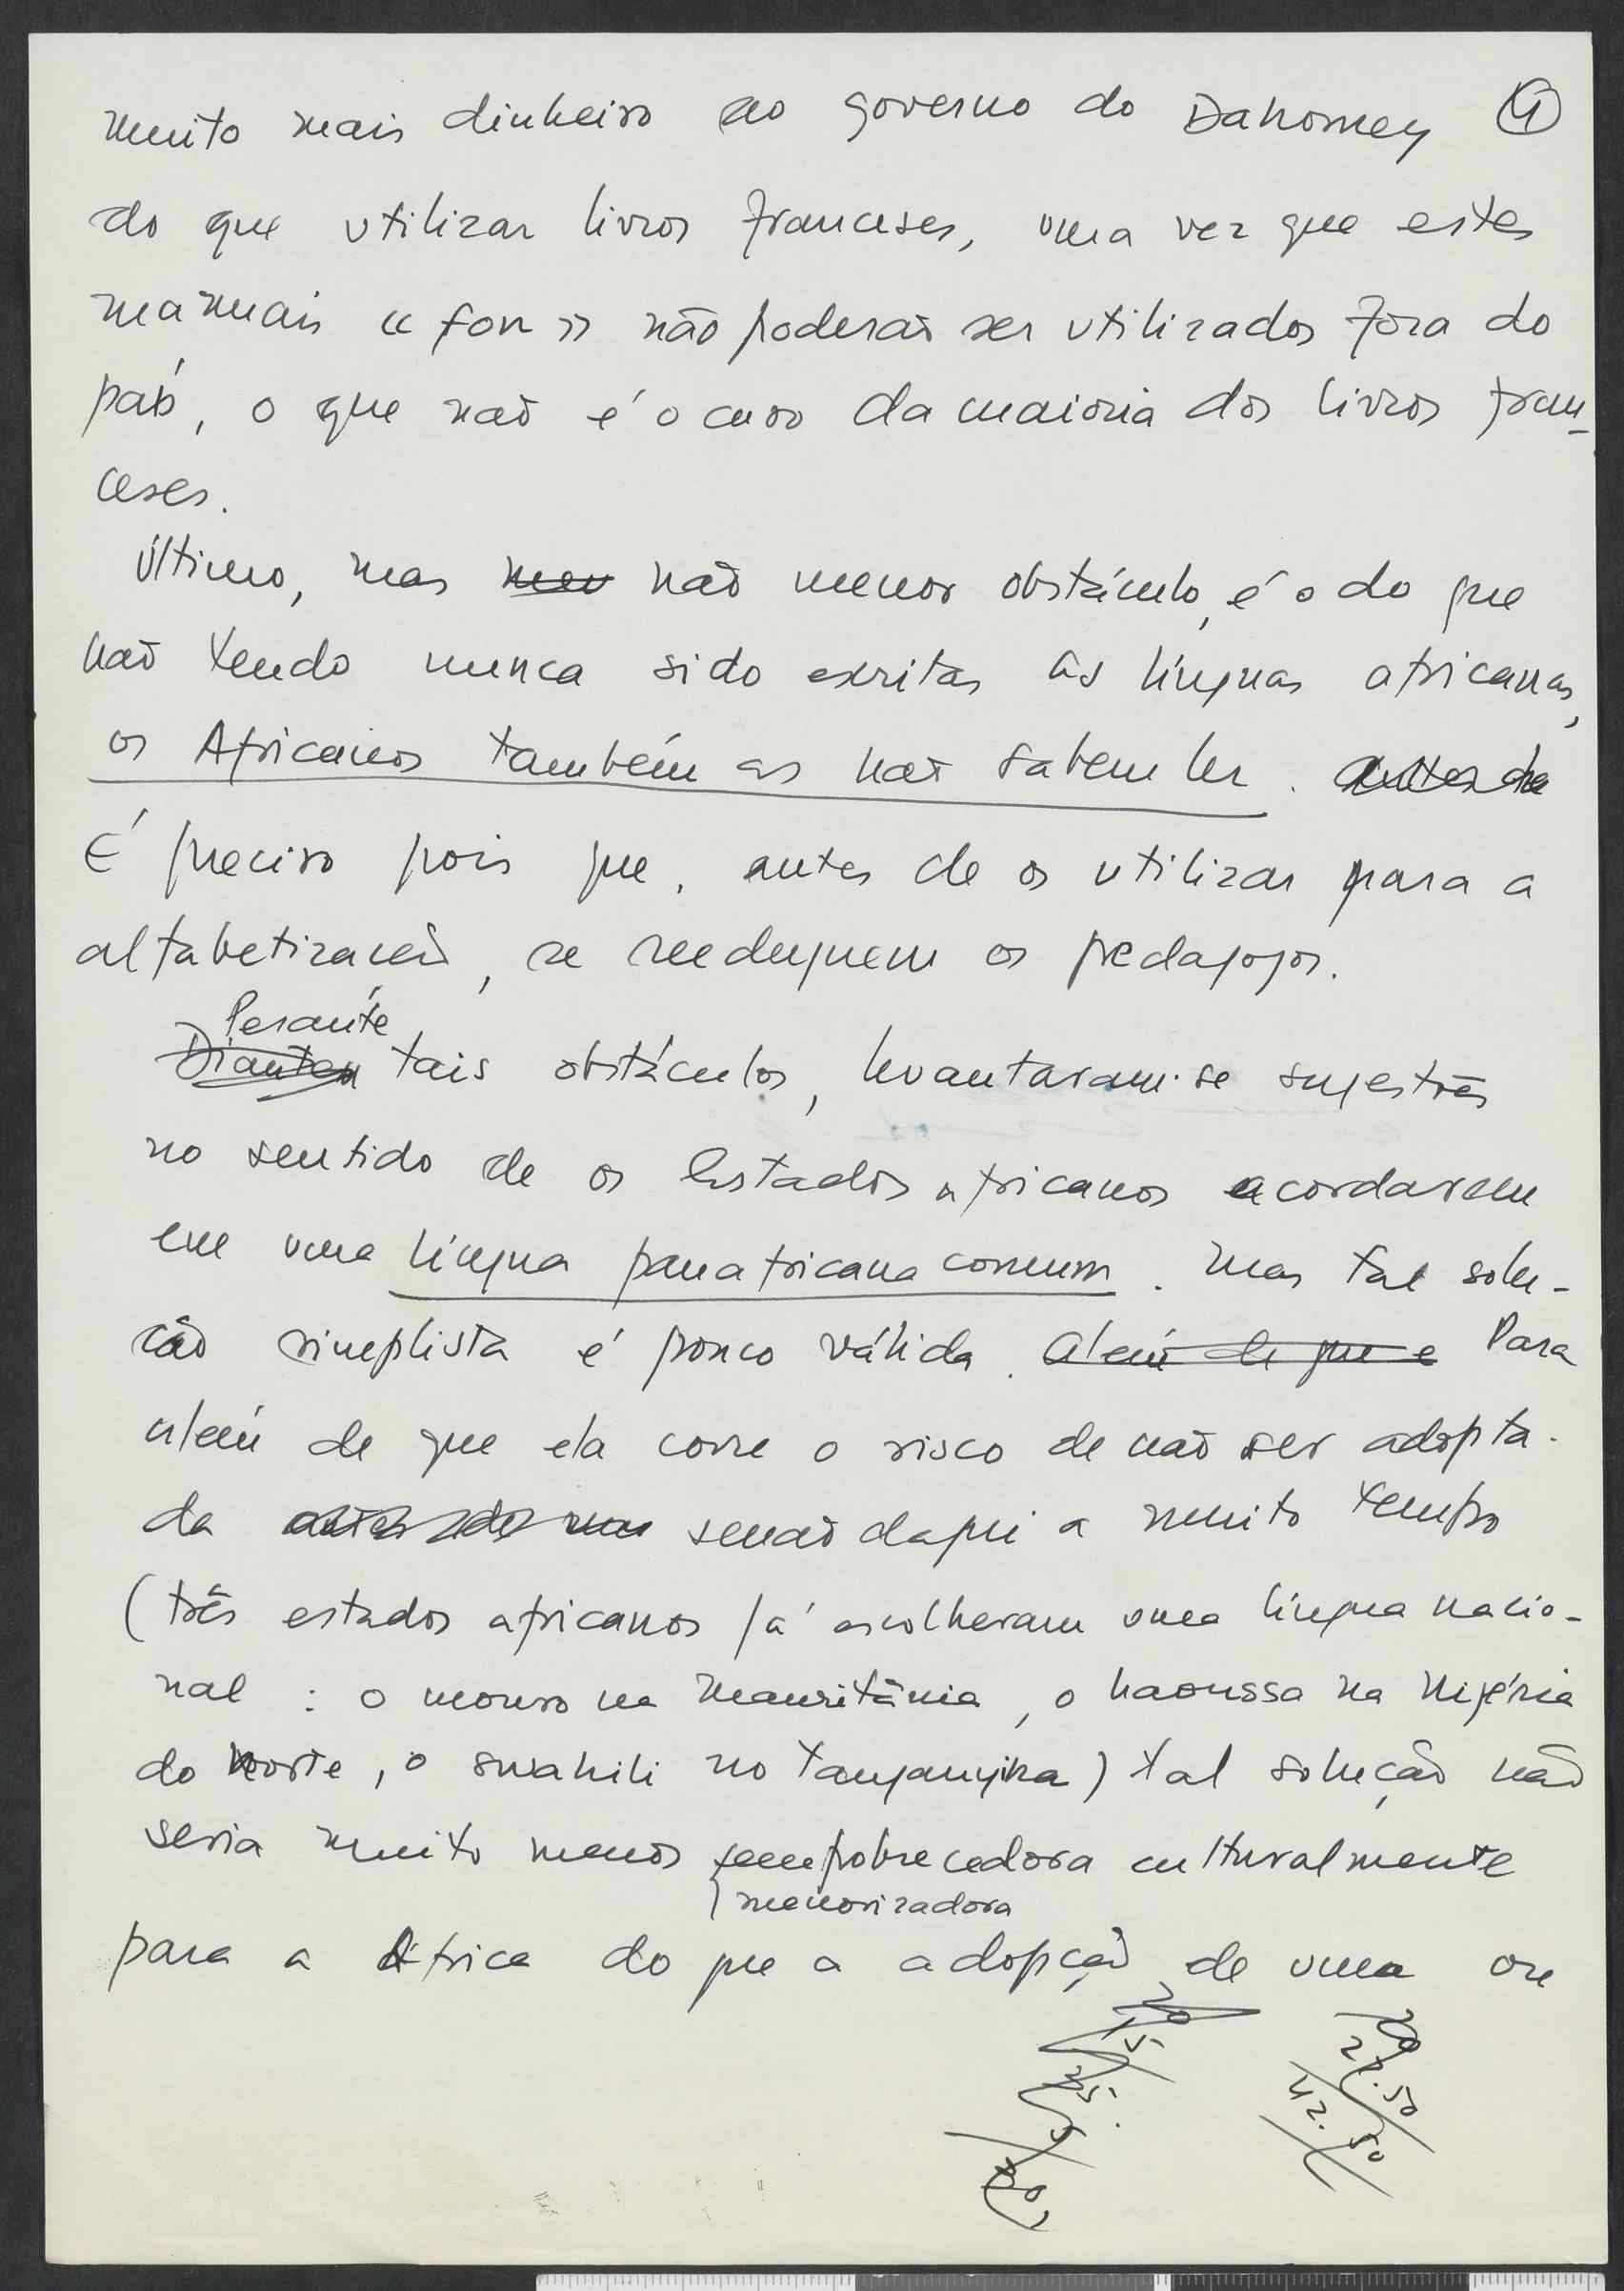 muito mais dinheiro ao governo do Dahomey 4
do que utilizar livros franceses, uma vez que estes
manuais « fon » não poderão ser utilizados fora do
país, o que não é o caso da maioria dos livros fran-
ceses.
Último, mas não menor obstáculo, é o do que
não tendo nunca sido escritas as línguas africanas,
os Africanos também as não sabem ler. antes de
É preciso pois que, antes de os utilizar para a
alfabetização, se reeduquem os pedagogos.
Perante
Diante tais obstáculos, levantaram-se sugestões
no sentido de os Estados africanos acordarem
em uma língua panafricana comum. Mas tal solu-
ção simplista é pouco válida. Além de que e Para
além de que ela corre o risco de não ser adopta-
da senão daqui a muito tempo
(três estados africanos já escolheram uma língua nacio-
nal : o mouro na Mauritânia, o haoussa na Nigéria
do Norte, o swahili no Tanganyika) tal solução não
seria muito menos empobrecedora culturalmente
menorizadora
para a África do que a adopção de uma ou
20
15
35.
20
22.50
42.50